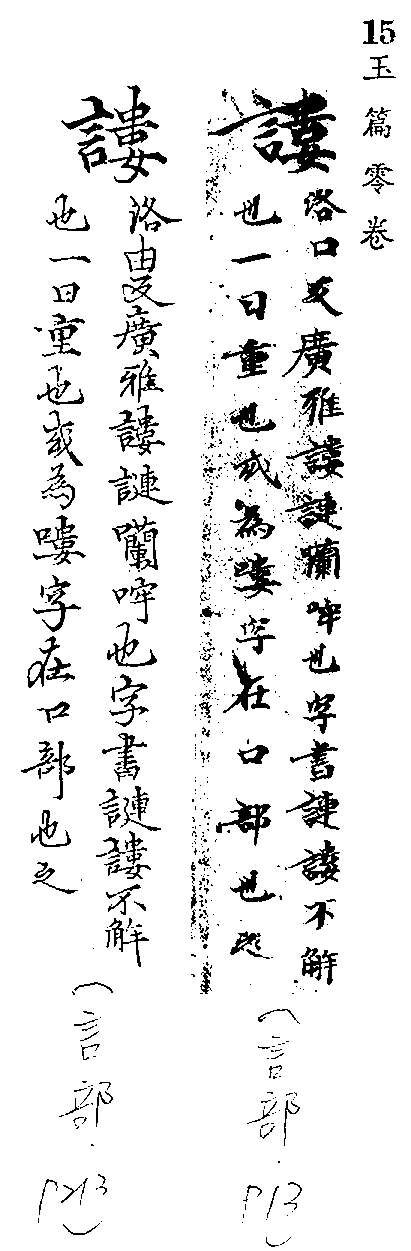 15
玉篇零卷
謱
洛口反廣雅謱謰囒哰也字書謰謱不解
也一曰重也或為嘍字在口部也
(言部.
P13)
謱
洛由反廣雅謱謰囒哰也字書謰謱不解
也一曰重也或為嘍字在口部也之
(言部.
P213)